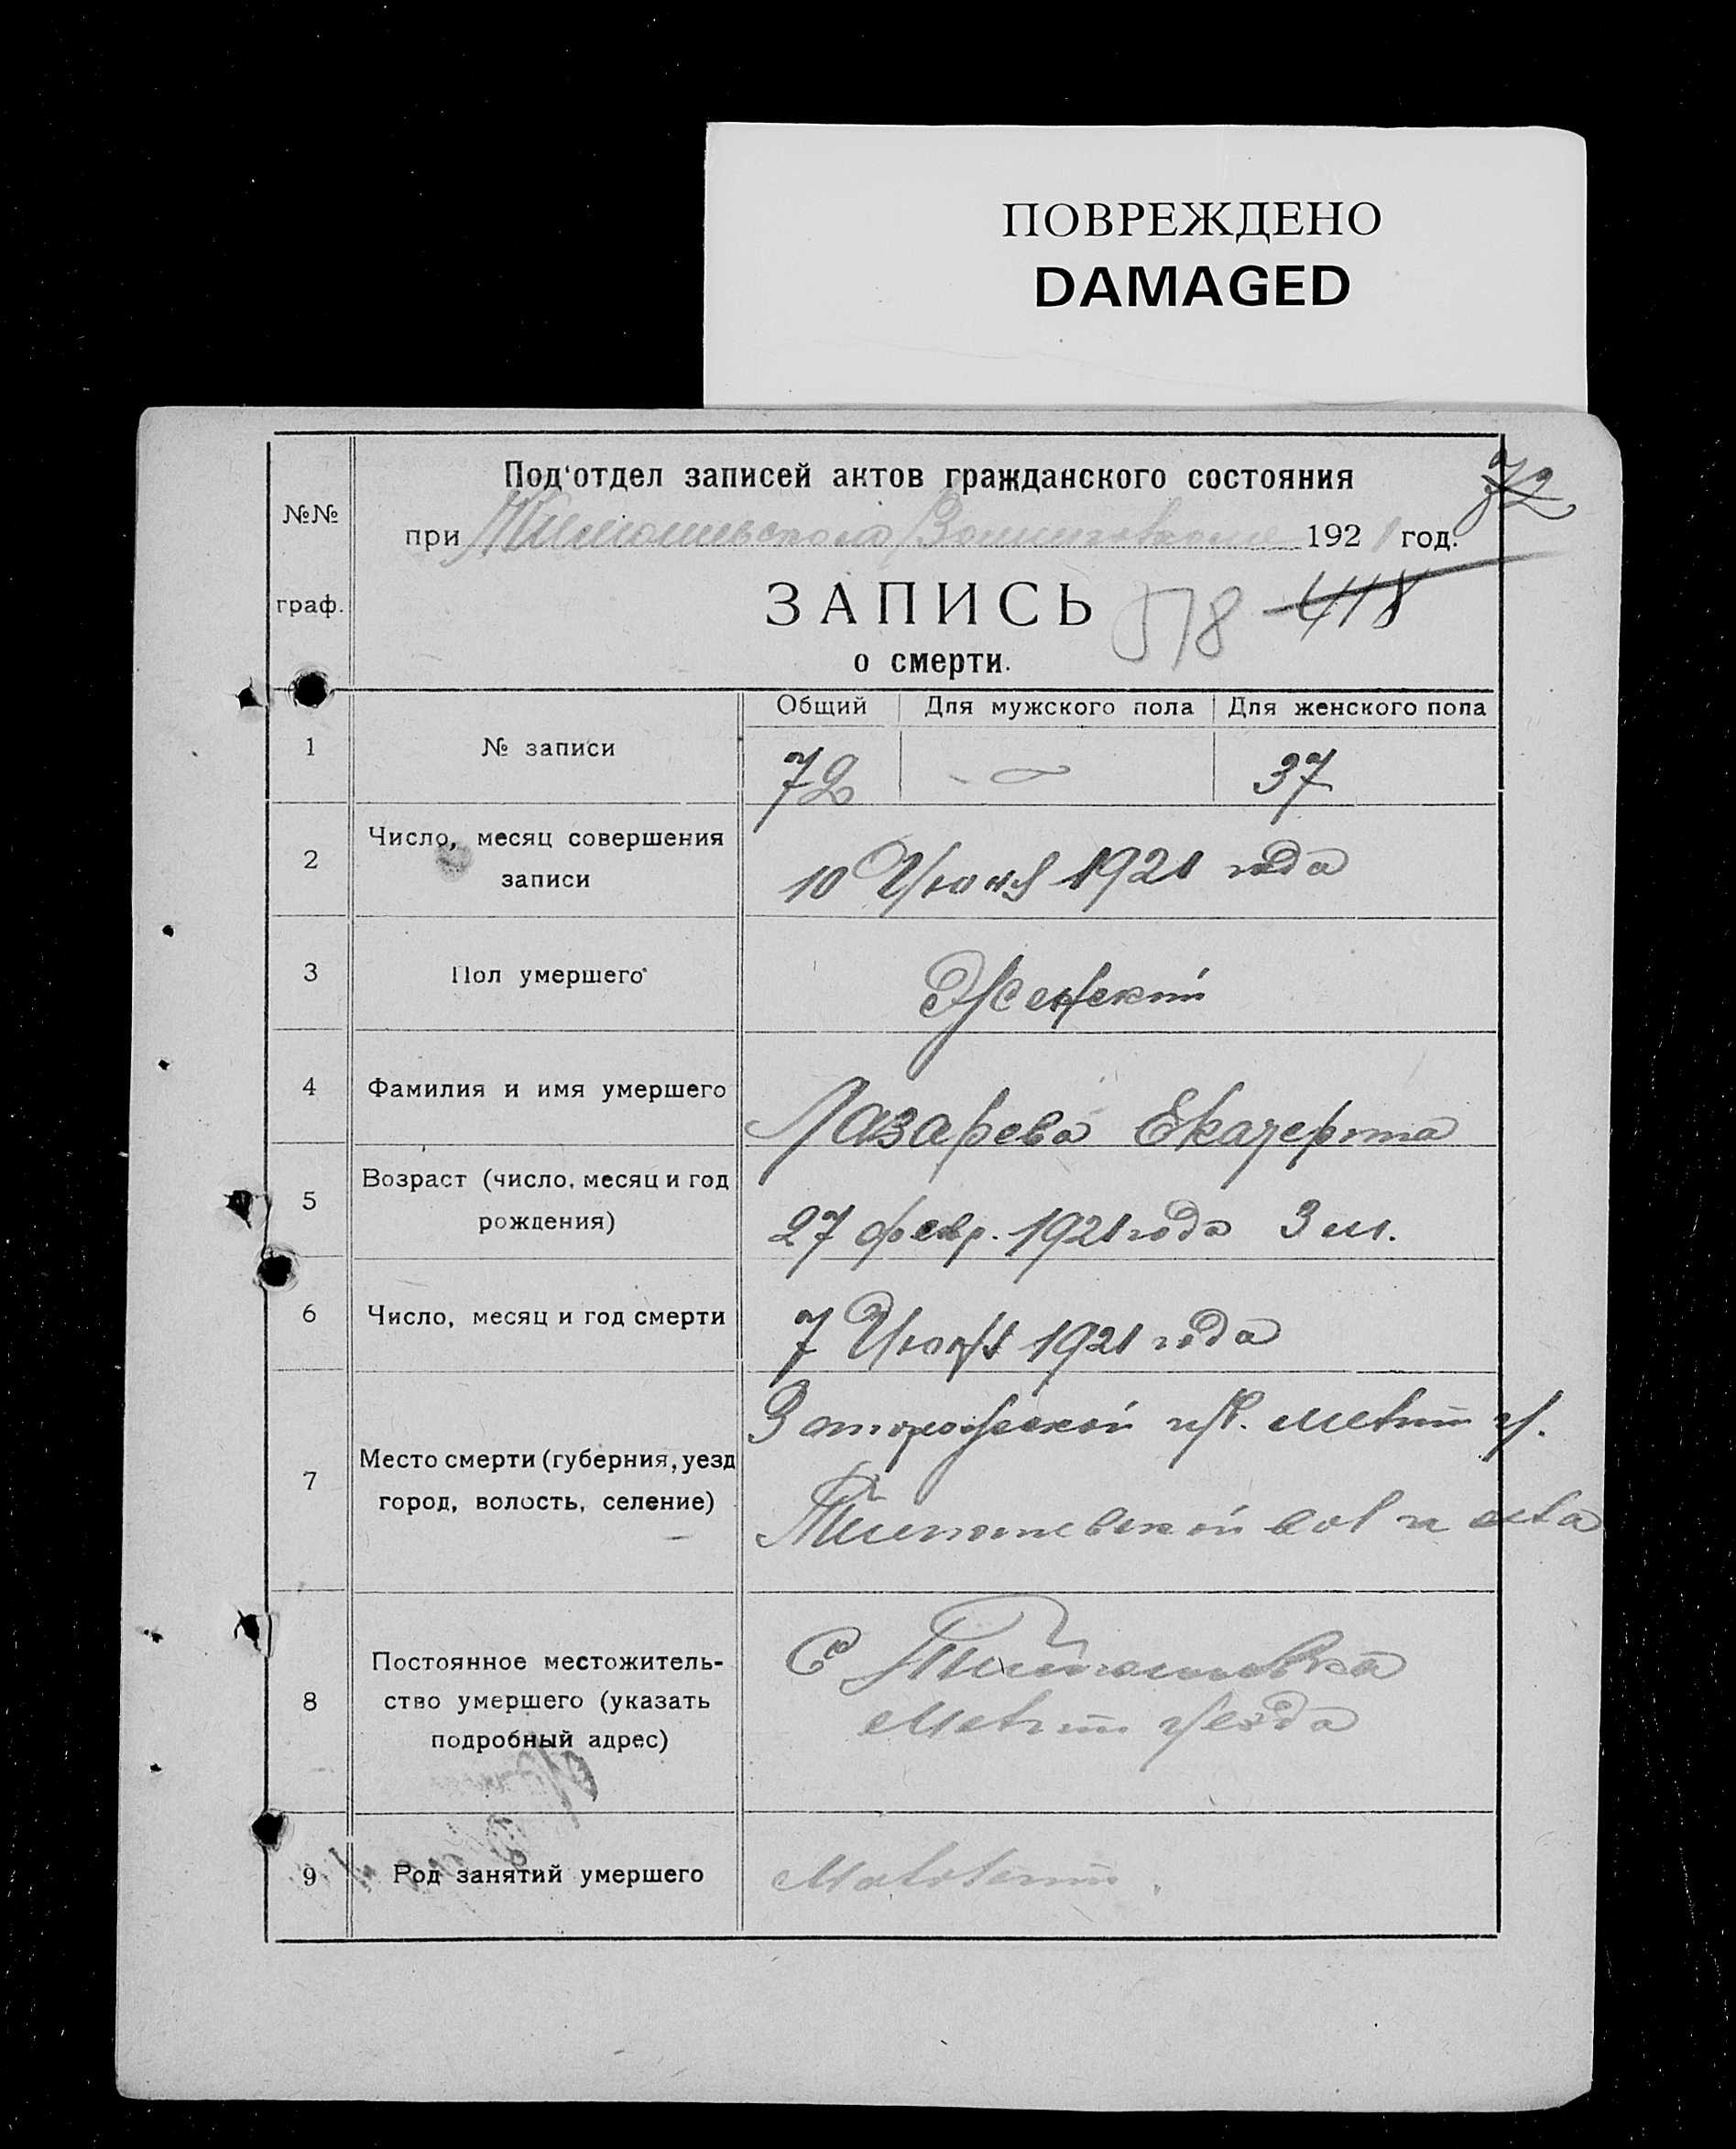 ПОВРЕЖДЕНО
DAMAGED
Под'отдел записей актов гражданского состояния
72
№№
при Тимошевском 1921 год.
граф.
ЗАПИСЬ
518 418
о смерти.
Общий Для мужского пола Для женского пола
1 № записи 72 — 37
2 Число, месяц совершения
записи
10 Июня 1921 года
3 Пол умершего Женский
4 Фамилия и имя умершего Лазарева Екатерина
5 Возраст (число, месяц и год
рождения)
27 февр. 1921 года 3 м.
6 Число, месяц и год смерти 7 Июня 1921 года
7 Место смерти (губерния, уезд
город, волость, селение)
Запорожской губ. Мелит у.
Тимошевской вол и села
8 Постоянное местожитель-
ство умершего (указать
подробный адрес)
С Тимошовка
Мелит уезда
9 Род занятий умершего